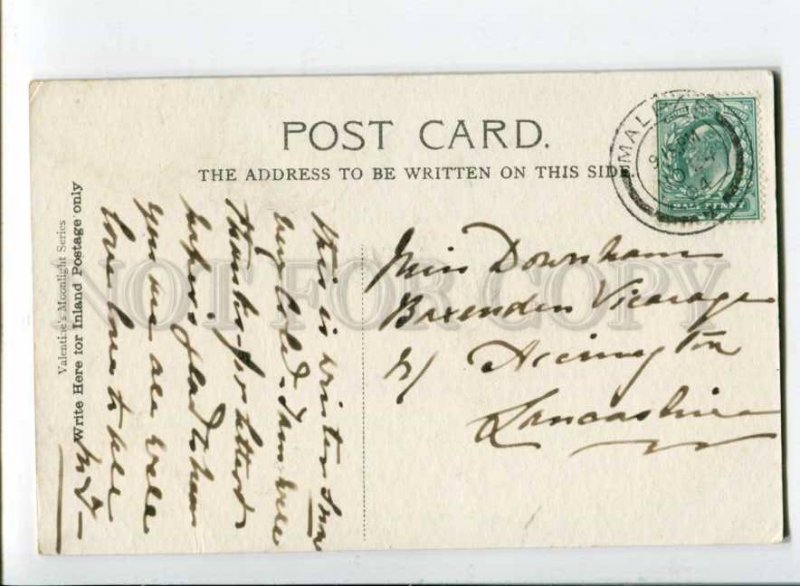 POST CARD.
THE ADDRESS TO BE WRITTEN ON THIS SIDE.
Valentine's Moonlight Series
Write Here for Inland Postage only
this is winter &
very cold - I am
Thanks for letter &
glad to hear
you are all well
love to all
Miss Downham
Baxenden Vicarage
Accrington
Lancashire
HALF PENNY
04
NOT FOR COPY